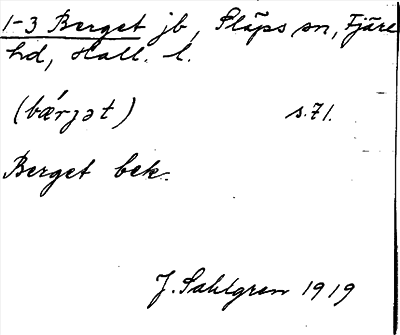 1-3 Berget jb, Släps sn, Fjäre
hd, Hall. l.
(bǽrjət) s. 71.
Berget bek.
J. Sahlgren 1919